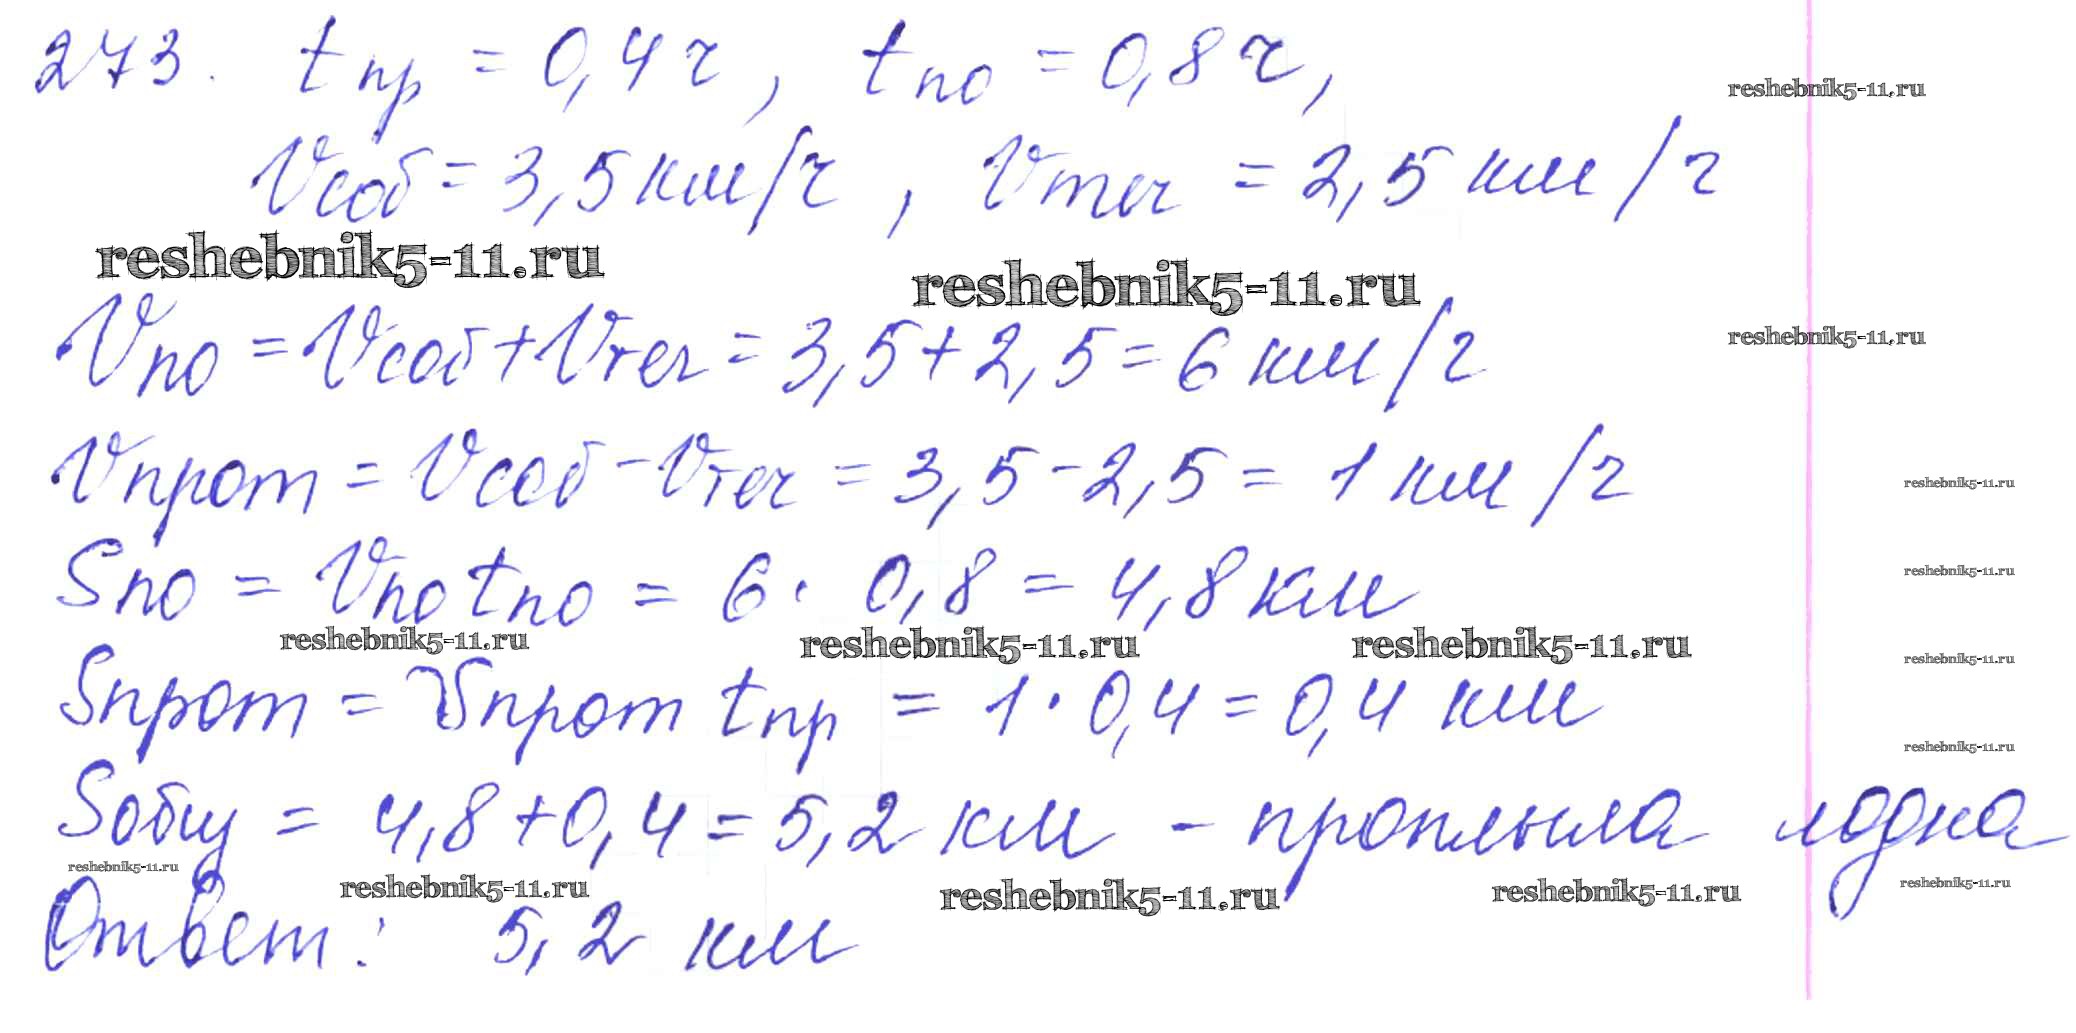 273. tпр = 0,4 ч, tпо = 0,8 ч,
reshebnik5-11.ru
Vсоб = 3,5 км/ч, Vтеч = 2,5 км/ч
reshebnik5-11.ru reshebnik5-11.ru
Vпо = Vсоб + Vтеч = 3,5 + 2,5 = 6 км/ч
reshebnik5-11.ru
Vпрот = Vсоб - Vтеч = 3,5 - 2,5 = 1 км/ч
reshebnik5-11.ru
Sпо = Vпо tпо = 6 · 0,8 = 4,8 км
reshebnik5-11.ru
reshebnik5-11.ru reshebnik5-11.ru reshebnik5-11.ru reshebnik5-11.ru
Sпрот = Vпрот tпр = 1 · 0,4 = 0,4 км
reshebnik5-11.ru
Sобщ = 4,8 + 0,4 = 5,2 км - проплыла лодка
reshebnik5-11.ru reshebnik5-11.ru reshebnik5-11.ru reshebnik5-11.ru reshebnik5-11.ru
Ответ: 5,2 км